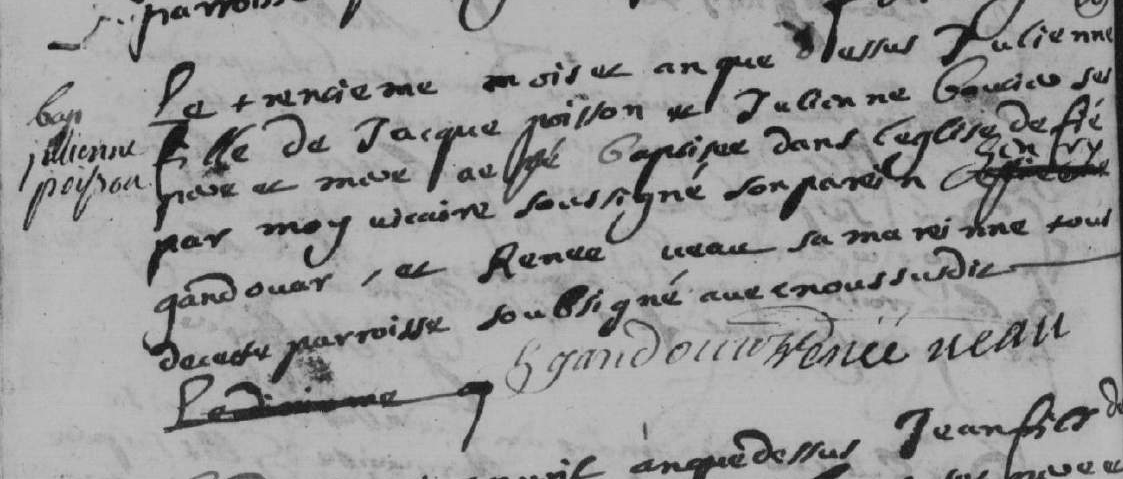 parroisse
bap
julienne
poisson
Le trencieme mois et an que dessus Julienne
fille de Jacque poisson et Julienne ses
pere et mere a esté baptisee dans leglise de
par moy vicaire soussigné son parein
gandouar, et Renee ueau sa mareinne tous
de cette parroisse soubsigné avec nous susdit
gandouar Renée ueau
Le
anque dessus Jean fils de